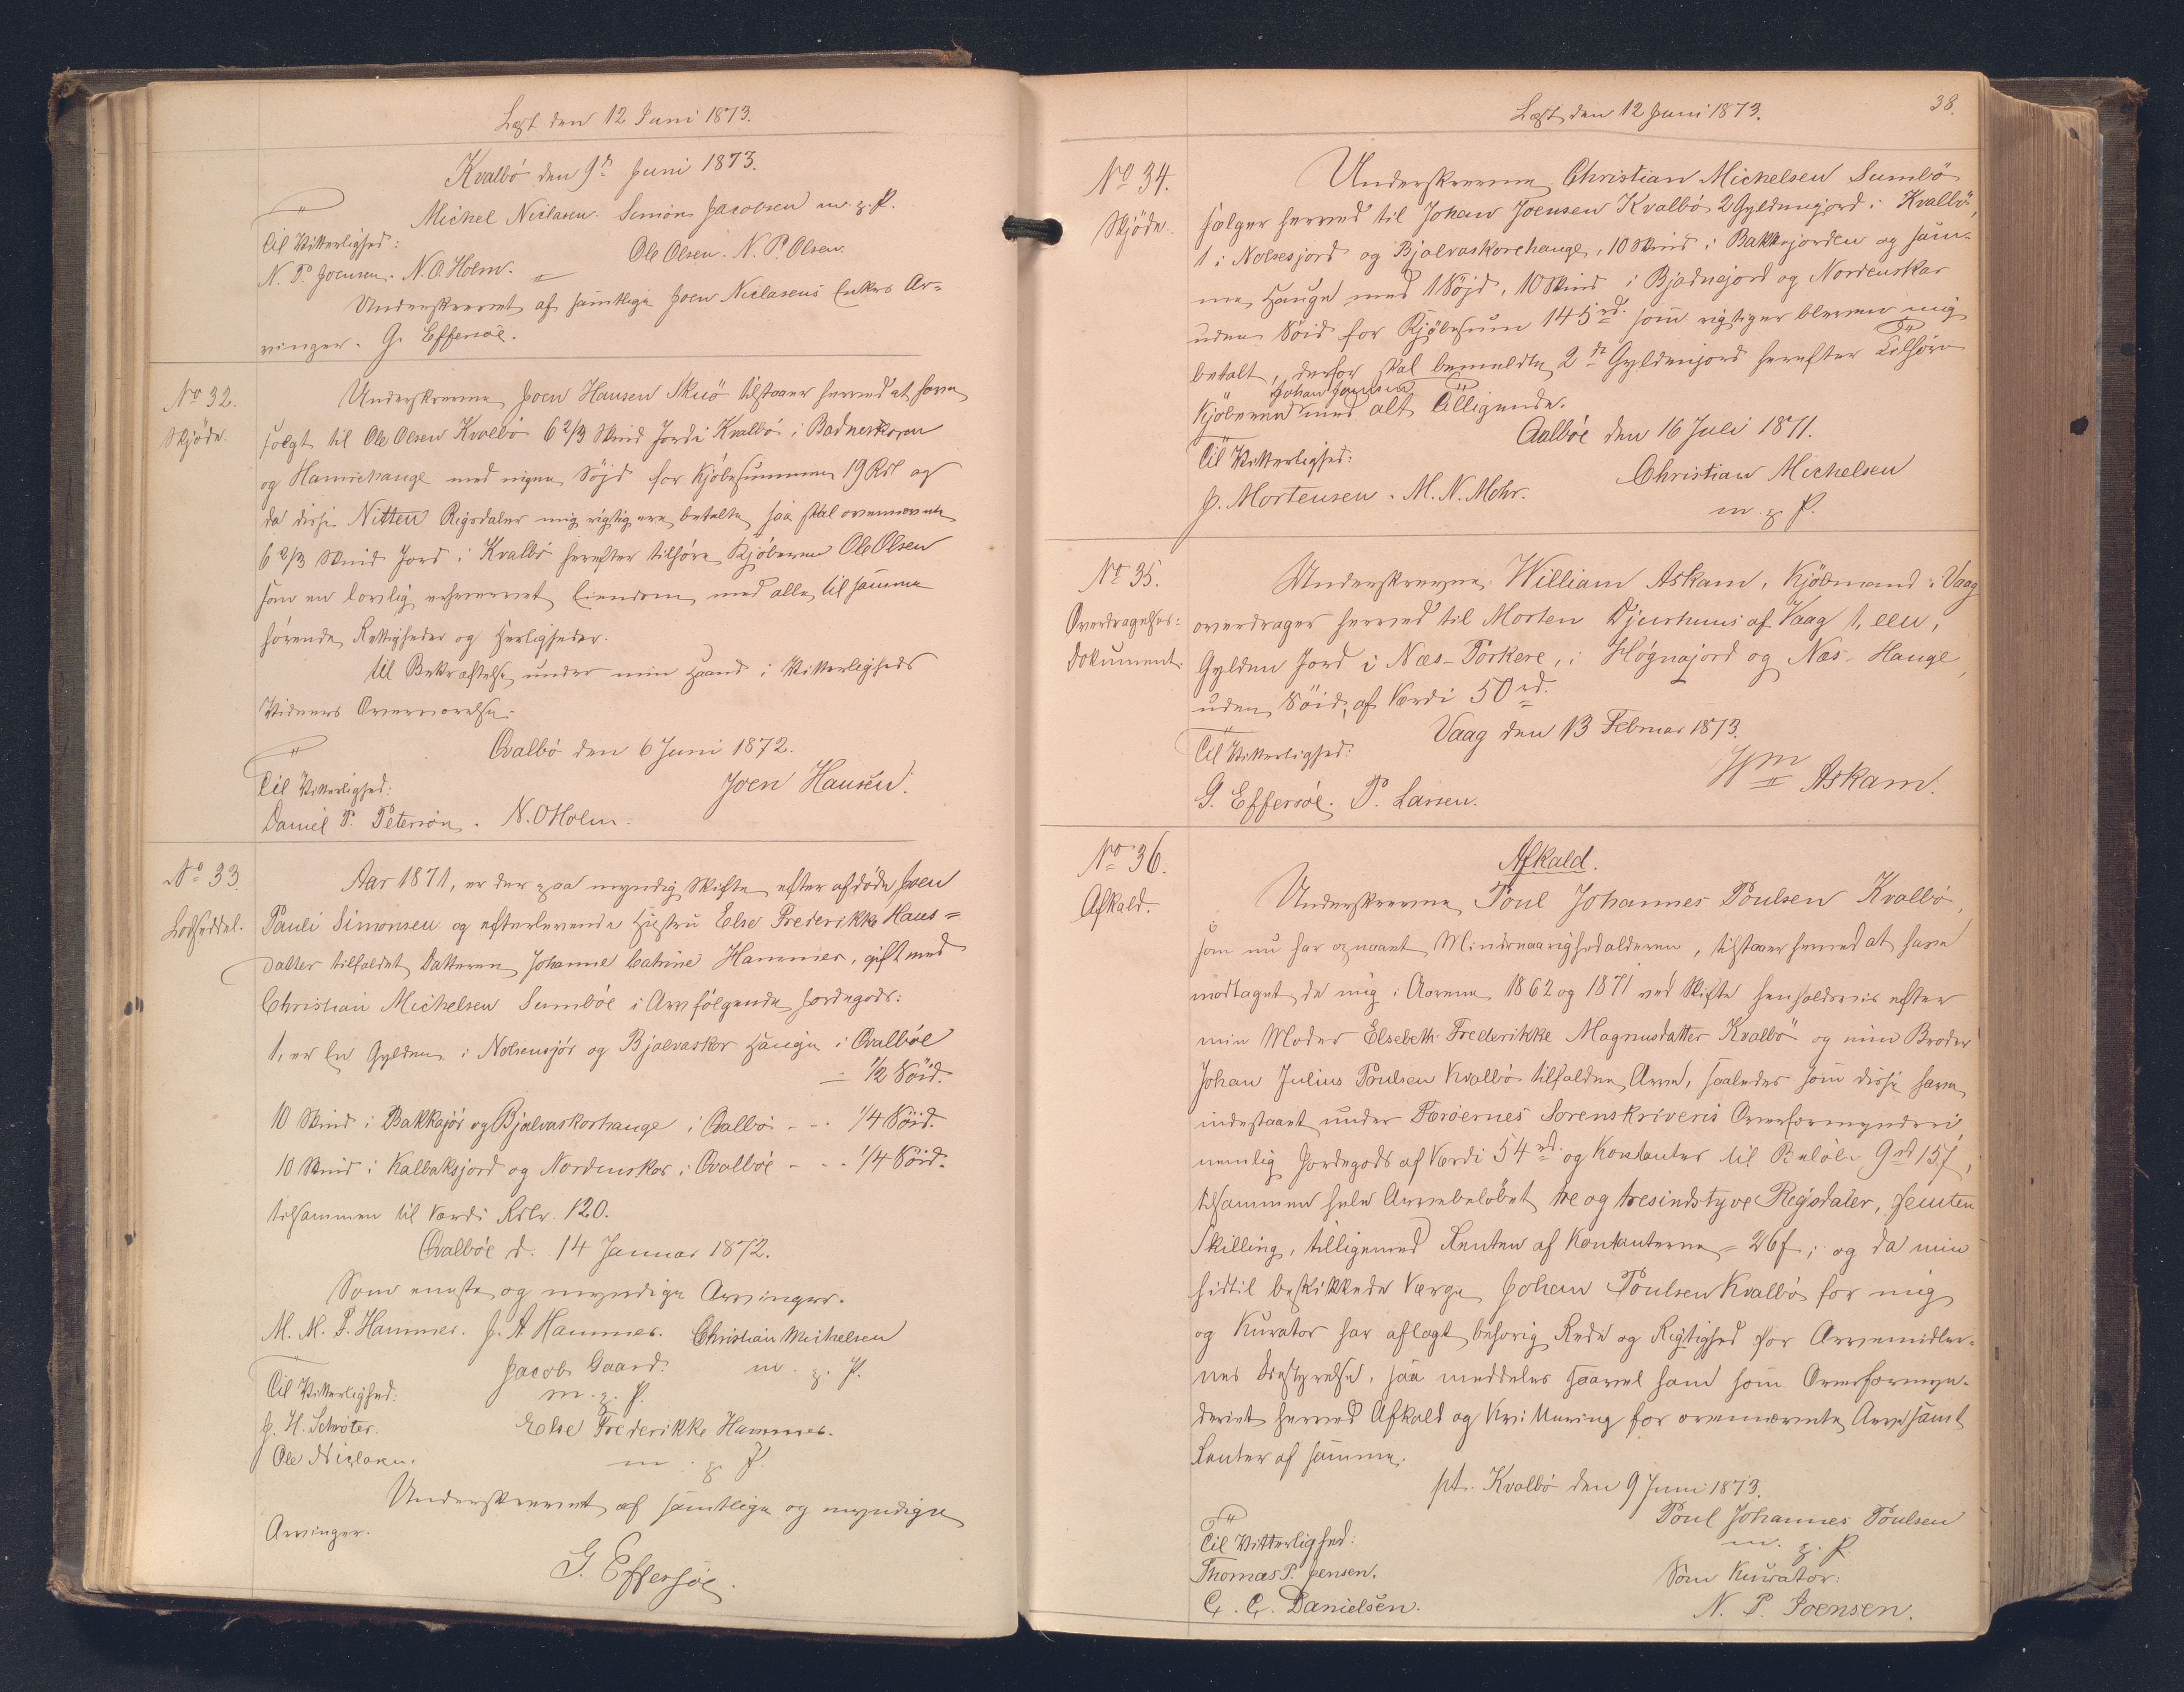 Læst den 12 Juni 1873.
Kvalbö den 9de Juni 1873.
Michel Niclasen. Simon Jacobsen m. p. P.
Til Vitterlighed:
Ole Olsen. N. P. Olsen.
N. P. Joensen. N. O. Holm.
Underskrevet af samtlige Joen Niclasens Enkes Ar=
vinger. G. Effersöe.
No 32.
Skjöde.
Underskrevne Joen Hansen Skuö tilstaaer herved at have
solgt til Ole Olsen Kvalbö 6 2/3 Skind Jord i Kvalbö i Badnerkoren
og Hamrehauge med ingen Söjd for Kjöbesummen 19 Rdl og
da disse Nitten Rigsdaler mig rigtig ere betalte, saa skal ovennævnte
6 2/3 Skind Jord i Kvalbö herefter tilhöre Kjöberen Ole Olsen
som en lovlig erhvervet Eiendom med alle til samme
hörende Rettigheder og Herligheder.
Til Bekræftelse under min Haand i Vitterligheds
Vidners Overværelse.
Qvalbö den 6 Juni 1872.
Til Vitterlighed:
Joen Hansen.
Daniel P. Petersön. N. O Holm.
No 33.
Lodseddel.
Aar 1871, er der paa myndig Skifte efter afdöde Joen
Pauli Simonsen og efterlevende Hustru Else Frederikke Hans=
datter tilfaldet Datteren Johanne Catrine Hammer, gift med
Christian Michelsen Sumböe i Arv følgende Jordegods:
1, er En Gylden i Nolsensjör og Bjalvaskor Hauge i Qvalböe
= 1/2 Söid.
10 Skind i Bakkajör og Bjalvaskorhauge i Qvalbö - - - 1/4 Söid.
10 Skind i Kalbaksjord og Nordenskor i Qvalböe - - - 1/4 Söid.
tilsammen til Værdi Rdlr. 120.
Qvalböe d. 14 Januar 1872.
Som eneste og myndige Arvinger.
M. M. J. Hammer. J. A Hammer. Christian Michelsen
Jacob Gaard. m. p. P.
Til Vitterlighed:
m. p. P.
J. H. Schröter.
Else Frederikke Hammer.
Ole Niclasen.
m. p. P.
Underskrevet af samtlige og myndige
Arvinger.
G. Effersöe.
38.
Læst den 12 Juni 1873.
No 34.
Skjöde.
Underskrevne Christian Michelsen Sumbö
sælger herved til Johan Joensen Kvalbö 2 Gyldenjord i Kvalbö,
1 i Nolsesjord og Bjalvaskorehauge, 10 Skind i Bakkejorden og sam-
me Hauge med 1 Söjd, 10 Skind i Bjadnejord og Nordenskor
uden Söid for Kjöbesum 145 rd. som rigtigen bleven mig
betalt, derfor skal bemeldte 2de Gyldenjord herefter Tilhöre
Johan Joensen
Kjöberen med alt Tilligende.
Qalböe den 16 Juli 1871.
Til Vitterlighed:
Christian Michelsen
J. Mortensen. M. N. Mohr.
m. p. P.
No 35.
Overdragelses=
dokument.
Underskrevne William Askam, Kjöbmand i Vaag
overdrager herved til Morten Djurhuus af Vaag 1, een,
Gylden Jord i Næs-Porkere, i Högnajord og Næs-Hauge,
uden Söid, af Værdi 50 rd.
Vaag den 13 Februar 1873.
Til Vitterlighed:
Wm Askam.
G. Effersöe. P. Larsen.
No 36.
Afkald.
Afkald.
Underskrevne Poul Johannes Poulsen Kvalbö,
som nu har opnaaet Mindreaarighedalderen, tilstaaer herved at have
modtaget de mig i Aarene 1862 og 1871 ved Skifte henholdsvis efter
min Moder Elsebeth Frederikke Magnusdatter Kvalbö og min Broder
Johan Julius Poulsen Kvalbö tilfaldne Arve, saaledes som disse have
indestaaet under Færöernes Sorenskriveris Overformynderi,
nemlig Jordegods af Værdi 54 rd. og Kontanter til Belöb 9 rd 15 f,
tilsammen hele Arvebelöbet tre og tresindstyve Rigsdaler, femten
Skilling, tilligemed Renten af Kontanterne = 26 f; og da min
hidtil beskikkede Værge Johan Poulsen Kvalbö for mig
og Kurator har aflagt behörig Rede og Rigtighed for Arvemidler-
nes Bestyrelse, saa meddeles saavel ham som Overformyn-
deriet herved Afkald og Kvittering for ovennævnte Arve samt
Renter af samme.
pt. Kvalbö den 9 Juni 1873.
Til Vitterlighed:
Poul Johannes Poulsen
m. p. P.
Thomas P. Jensen.
Som Kurator:
C. C. Danielsen.
N. P. Joensen.